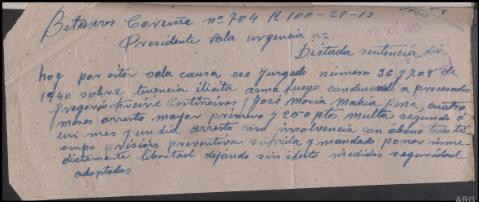 Betanzos Coruña nº 704 R-100-29-13
Presidente Sala urgencia a=
Dictada sentencia dia
hoy por esta sala causa ese Juzgado número 36 y 208 de
1940 sobre tenencia ilicita arma fuego condenando a procesados
Gregorio Freire Cortiñeiros y José Maria Mahia Rosa, cuatro
meses arresto mayor primero y 250 ptas multa segundo ó
un mes y un dia arresto caso insolvencia con abono todo ti=
empo prisión preventiva sufrida y mandado poner inme=
diatamente libertad dejando sin efecto medidas seguridad
adoptadas
ARG